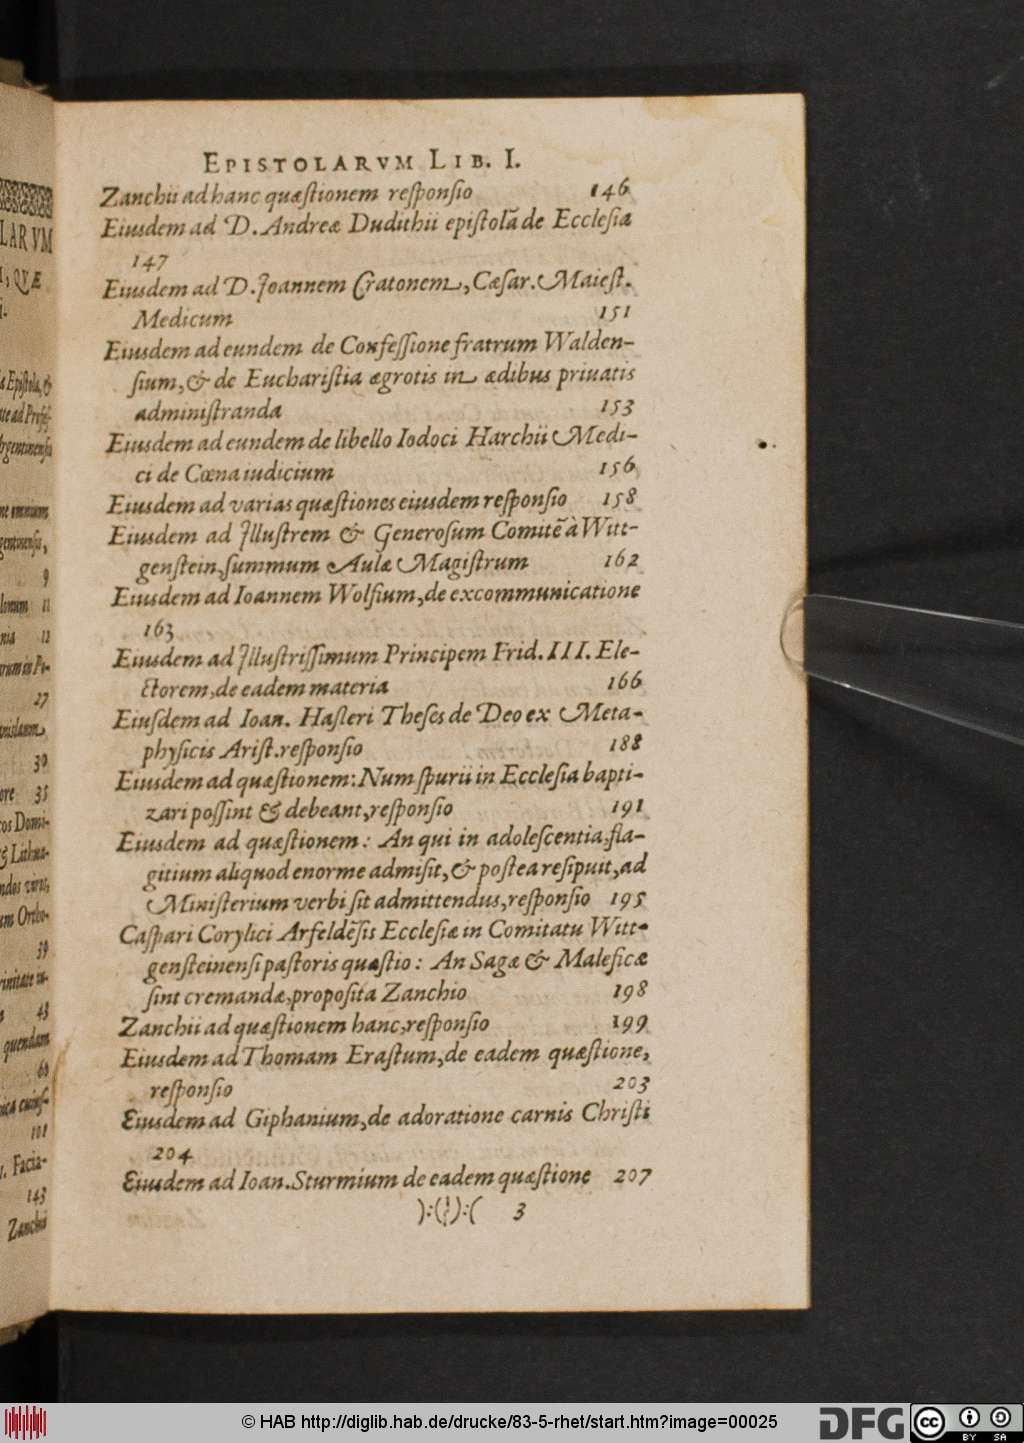 EPISTOLARVM LIB. I.
Zanchii ad hanc quæstionem responsio 146
Eiusdem ad D. Andreæ Dudithii epistolā de Ecclesia
147
Eiusdem ad D. Joannem Cratonem, Cæsar. Maiest.
Medicum 151
Eiusdem ad eundem de Confessione fratrum Walden-
sium, & de Eucharistia ægrotis in ædibus priuatis
administranda 153
Eiusdem ad eundem de libello Iodoci Harchii Medi-
ci de Cœna iudicium 156
Eiusdem ad varias quæstiones eiusdem responsio 158
Eiusdem ad Jllustrem & Generosum Comitē à Witt-
genstein, summum Aulæ Magistrum 162
Eiusdem ad Ioannem Wolfium, de excommunicatione
163
Eiusdem ad Jllustrissimum Principem Frid. III. Ele-
ctorem, de eadem materia 166
Eiusdem ad Ioan. Hasleri Theses de Deo ex Meta-
physicis Arist. responsio 188
Eiusdem ad quæstionem: Num spurii in Ecclesia bapti-
zari possint & debeant, responsio 191
Eiusdem ad quæstionem: An qui in adolescentia, fla-
gitium aliquod enorme admisit, & postea resipuit, ad
Ministerium verbi sit admittendus, responsio 195
Caspari Corylici Arfeldēsis Ecclesiæ in Comitatu Witt-
gensteinensi pastoris quæstio: An Sagæ & Maleficæ
sint cremandæ, proposita Zanchio 198
Zanchii ad quæstionem hanc, responsio 199
Eiusdem ad Thomam Erastum, de eadem quæstione,
responsio 203
Eiusdem ad Giphanium, de adoratione carnis Christi
204
Eiusdem ad Ioan. Sturmium de eadem quæstione 207
):(!):( 3
LARVM
QVÆ
9
11
12
27
30
35
39
43
60
101
Facia-
143
Zanchii
© HAB http://diglib.hab.de/drucke/83-5-rhet/start.htm?image=00025
DFG
cc BY SA